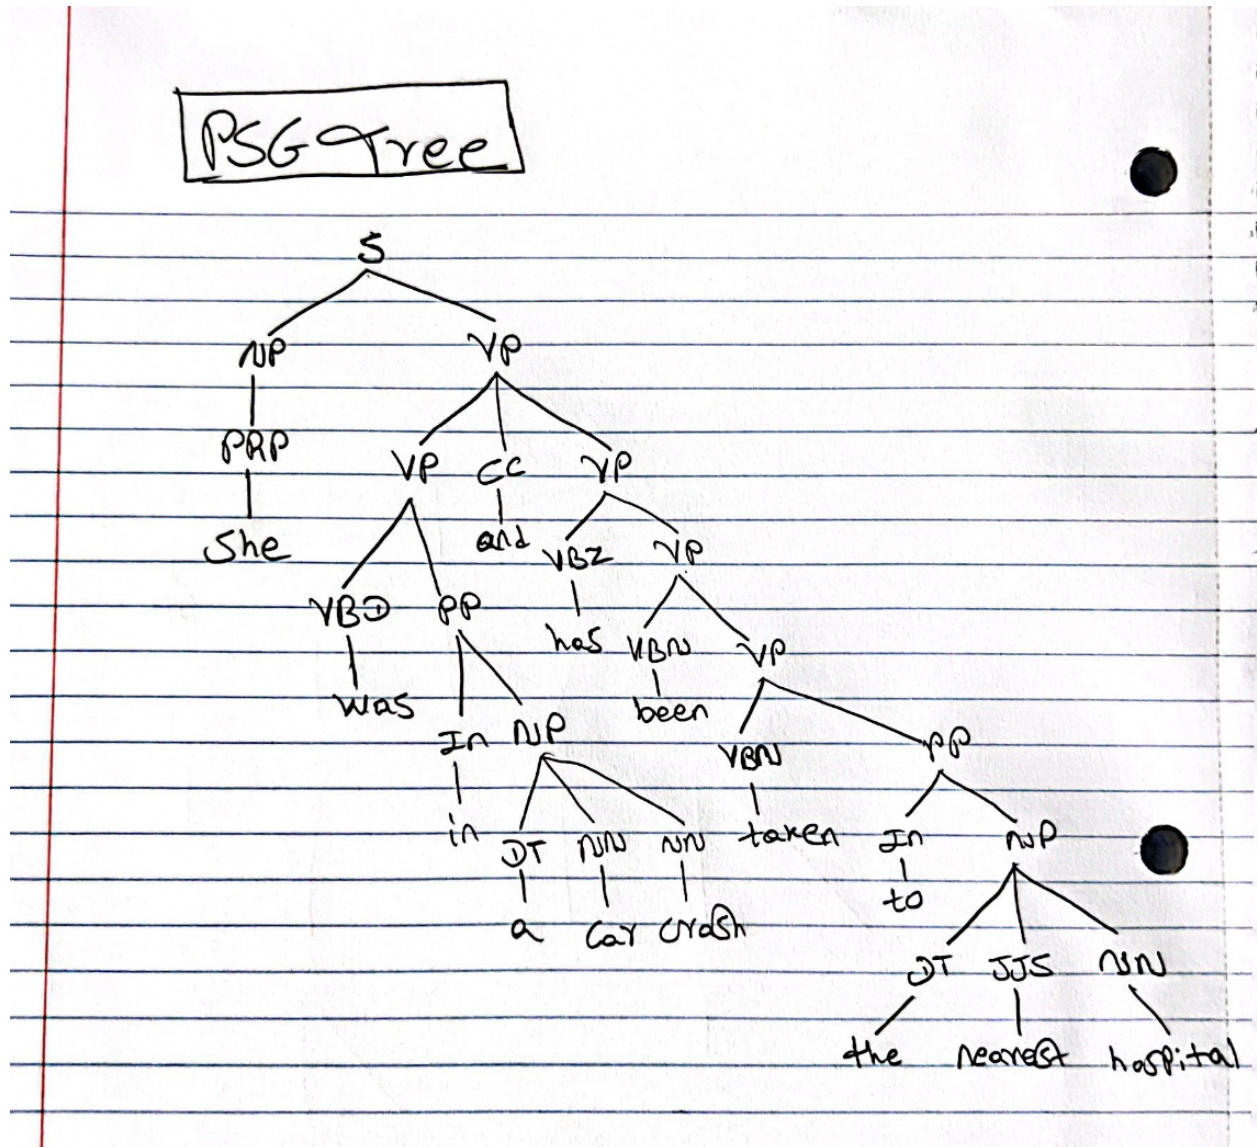 PSG Tree
S
NP VP
PRP VP CC VP
She and VBZ VP
VBD PP has VBN VP
was In NP been VBN PP
in DT NN NN taken In NP
a car crash to
DT JJS NN
the nearest hospital